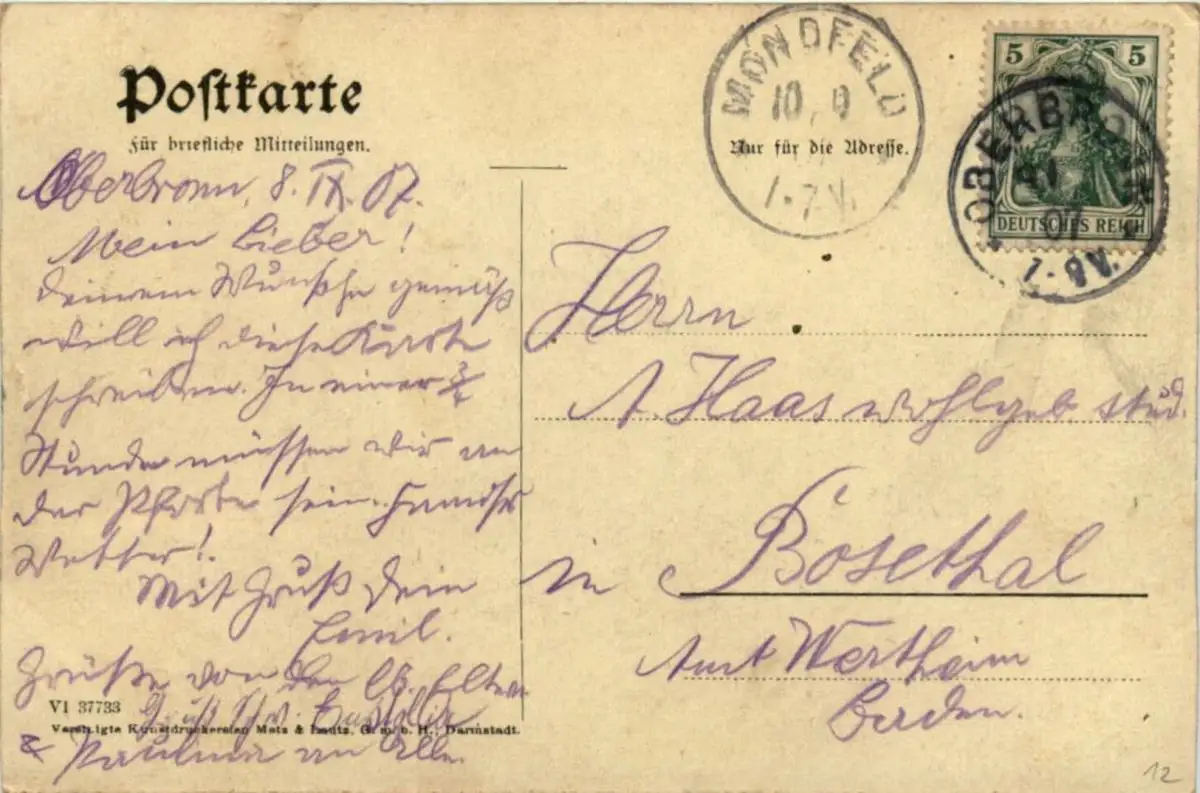 Postkarte
Für briefliche Mitteilungen.
Nur für die Adresse.
MONDFELD
10 9
1-7V.
5 5
DEUTSCHES REICH
OBERBRONN
07
7-8V.
Oberbronn, 8. IX. 07.
Mein Lieber!
Deinem Wunsche gemäß
will ich diese Karte
schreiben. In einer 3/4
Stunde müssen wir an
der Pforte sein. Famoses
Wetter!
Mit Gruß Dein
Emil.
Grüße von den lb. Eltern
& Paulina an Alle.
Herrn
A. Haas wohlgeb. stud.
in Bosethal
Amt Wertheim
Baden.
VI 37733
Vereinigte Kunstdruckereien Metz & Lautz, G. m. b. H., Darmstadt.
12